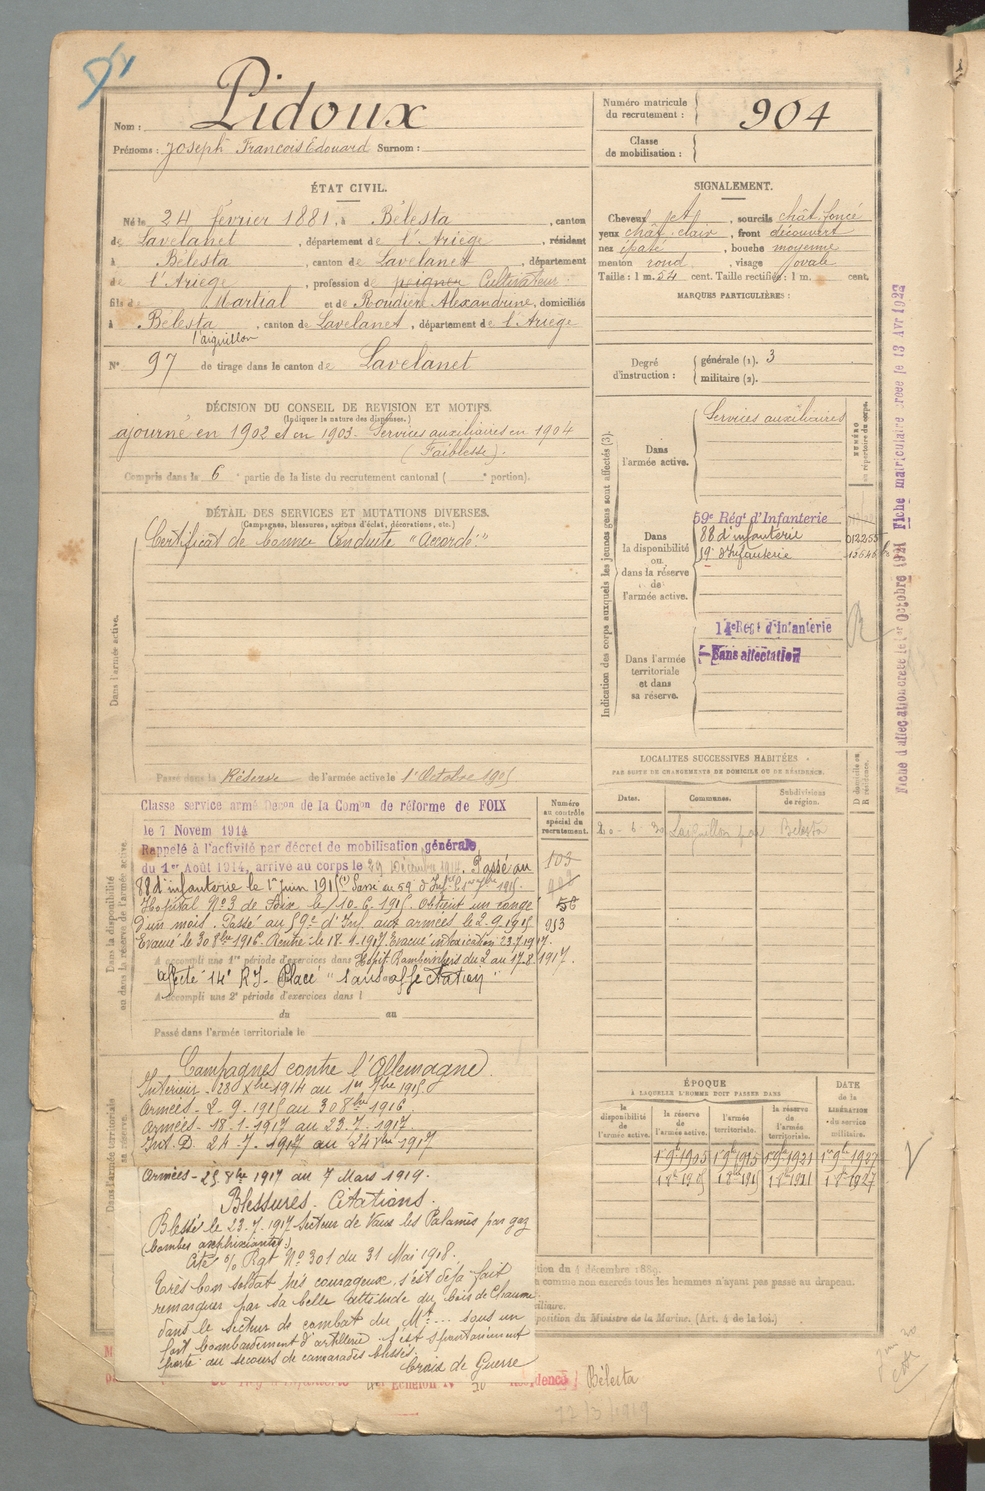 Pidoux
Nom :
Prénoms : Joseph François Edouard Surnom :
Numéro matricule du recrutement : 904
Classe de mobilisation :
ÉTAT CIVIL.
Né le 24 février 1881, à Bélesta, canton
de Lavelanet, département de l'Ariège, résidant
à Bélesta, canton de Lavelanet, département
de l'Ariège, profession de peigneur Cultivateur
fils de Martial et de Roudière Alexandrine, domiciliés
à Bélesta, canton de Lavelanet, département de l'Ariège
l'aiguillon
N° 97 de tirage dans le canton de Lavelanet
SIGNALEMENT.
Cheveux chât, sourcils chât. foncé
yeux chât. clair, front découvert
nez épaté, bouche moyenne
menton rond, visage ovale
Taille : 1 m. 54 cent. Taille rectifiée : 1 m. cent.
MARQUES PARTICULIÈRES :
Degré d'instruction : générale (1). 3
militaire (2).
DÉCISION DU CONSEIL DE REVISION ET MOTIFS.
(Indiquer la nature des dispenses.)
ajourné en 1902 et en 1903. Services auxiliaires en 1904
(Faiblesse).
Compris dans la 6e partie de la liste du recrutement cantonal ( e portion).
DÉTAIL DES SERVICES ET MUTATIONS DIVERSES.
(Campagnes, blessures, actions d'éclat, décorations, etc.)
Dans l'armée active.
Certificat de bonne Conduite "Accordé"
Passé dans la Réserve de l'armée active le 1er Octobre 1905
Indication des corps auxquels les jeunes gens sont affectés (3).
NUMÉRO au répertoire du corps.
Dans l'armée active.
Services auxiliaires
Dans la disponibilité ou dans la réserve de l'armée active.
59e Régt d'Infanterie
88 d'infanterie 012255
59e d'Infanterie
Dans l'armée territoriale et dans sa réserve.
14e Regt d'infanterie
Sans affectation
Fiche d'affectation créée le 1er Octobre 1921 Fiche matriculaire créée le 13 Avr 1922
LOCALITES SUCCESSIVES HABITÉES
PAR SUITE DE CHANGEMENTS DE DOMICILE OU DE RÉSIDENCE.
D domicile ou R résidence.
Dates. Communes. Subdivisions de région.
20-6-30 L'aiguillon par Bélesta
Dans la disponibilité ou dans la réserve de l'armée active.
Numéro au contrôle spécial du recrutement.
Classé service armé Décon de la Comon de réforme de FOIX
le 7 Novem 1914
Rappelé à l'activité par décret de mobilisation générale,
du 1er Août 1914, arrivé au corps le 29 Décembre 1914. Passé au
88 d'infanterie le 1er juin 1915 (1) Passé au 59e d'Inf
Hopital N° 3 de Foix le 10.6.1915. Obtient un congé
D'un mois. Passé au 59e d'Inf. aux armées le 2.9.1915
Evacué le 30 8bre 1916. Rentré le 18.1.1917. Evacué intoxication 23.7.1917.
A accompli une 1re période d'exercices dans Hopit. Rambervillers du 2 au 17.8.1917.
Affecté 14e RI. Placé "sans affectation"
A accompli une 2e période d'exercices dans l
du au
Passé dans l'armée territoriale le
103
58
953
Dans l'armée territoriale et sa réserve.
Campagnes contre l'Allemagne
Intérieur - 28 Xbre 1914 au 1er 7bre 1915
Armées - 2.9.1915 au 30 8bre 1916
Armées - 18.1.1917 au 23.7.1917.
Int. D. 24.7.1917 au 24 8bre 1917
Armées - 25 8bre 1917 au 7 Mars 1919.
Blessures. Citations.
Blessé le 23.7.1917 Secteur de Vaux les Palameix par gaz
(bombes asphixiantes.)
Cité o/ Rgt N° 301 du 31 Mai 1918.
Très bon soldat très courageux s'est déjà fait
remarquer par sa belle attitude du bois de Chaume
dans le secteur de combat du Mt... sous un
fort bombardement d'artillerie s'est spontanément
porté au secours de camarades blessés.
Croix de Guerre
ÉPOQUE
À LAQUELLE L'HOMME DOIT PASSER DANS
DATE de la LIBÉRATION du service militaire.
la disponibilité de l'armée active. la réserve de l'armée active. l'armée territoriale. la réserve de l'armée territoriale.
1 9bre 1905 1 9bre 1915 1 9bre 1921 1er 9bre 1927
1 8bre 1905 1 8bre 1915 1 8bre 1921 1 8bre 1927
tion du 4 décembre 1889.
comme non exercés tous les hommes n'ayant pas passé au drapeau.
position du Ministre de la Marine. (Art. 4 de la loi.)
Echelon N° 30 Résidence Bélesta
17/3/1919